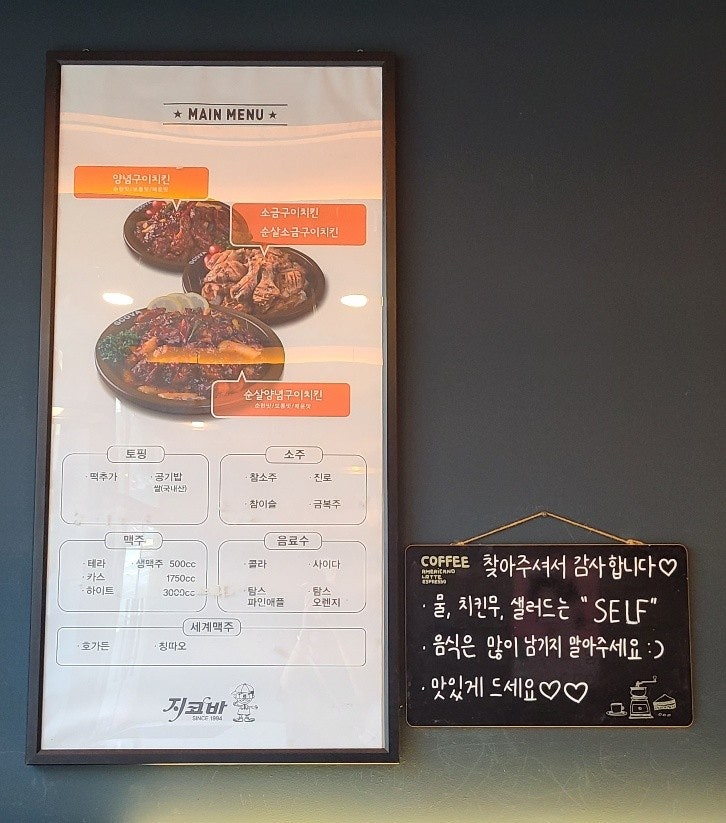 ★ MAIN MENU ★
양념구이치킨
순한맛/보통맛/매운맛
소금구이치킨
순살소금구이치킨
순살양념구이치킨
순한맛/보통맛/매운맛
토핑
· 떡추가 · 공기밥
쌀(국내산)
소주
· 참소주 · 진로
· 참이슬 · 금복주
맥주
· 테라 생맥주 500cc
· 카스 1750cc
· 하이트 3000cc
음료수
· 콜라 · 사이다
· 탐스 파인애플
· 탐스 오렌지
세계맥주
· 호가든 · 칭따오
지코바
SINCE 1994
COFFEE
AMERICANO
LATTE
ESPRESSO
찾아주셔서 감사합니다♡
· 물, 치킨무, 샐러드는 "SELF"
· 음식은 많이 남기지 말아주세요 :)
· 맛있게 드세요♡♡